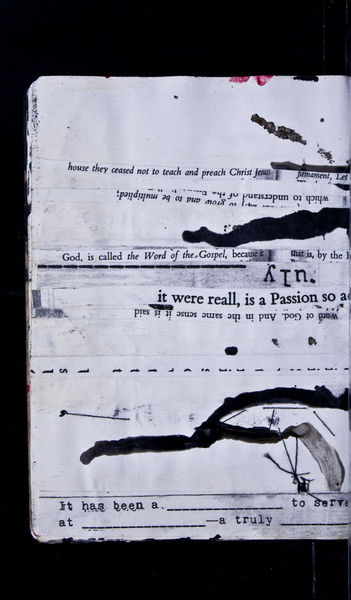 house they ceased not to teach and preach Christ Jesus
firmament, Let
which to understand of the
to grow and to be multiplied;
God, is called the Word of the Gospel, because
that is, by the
it were reall, is a Passion so a
Word of God. And in the same sense it is said
It has been a ____________ to serve
at ____________—a truly ________